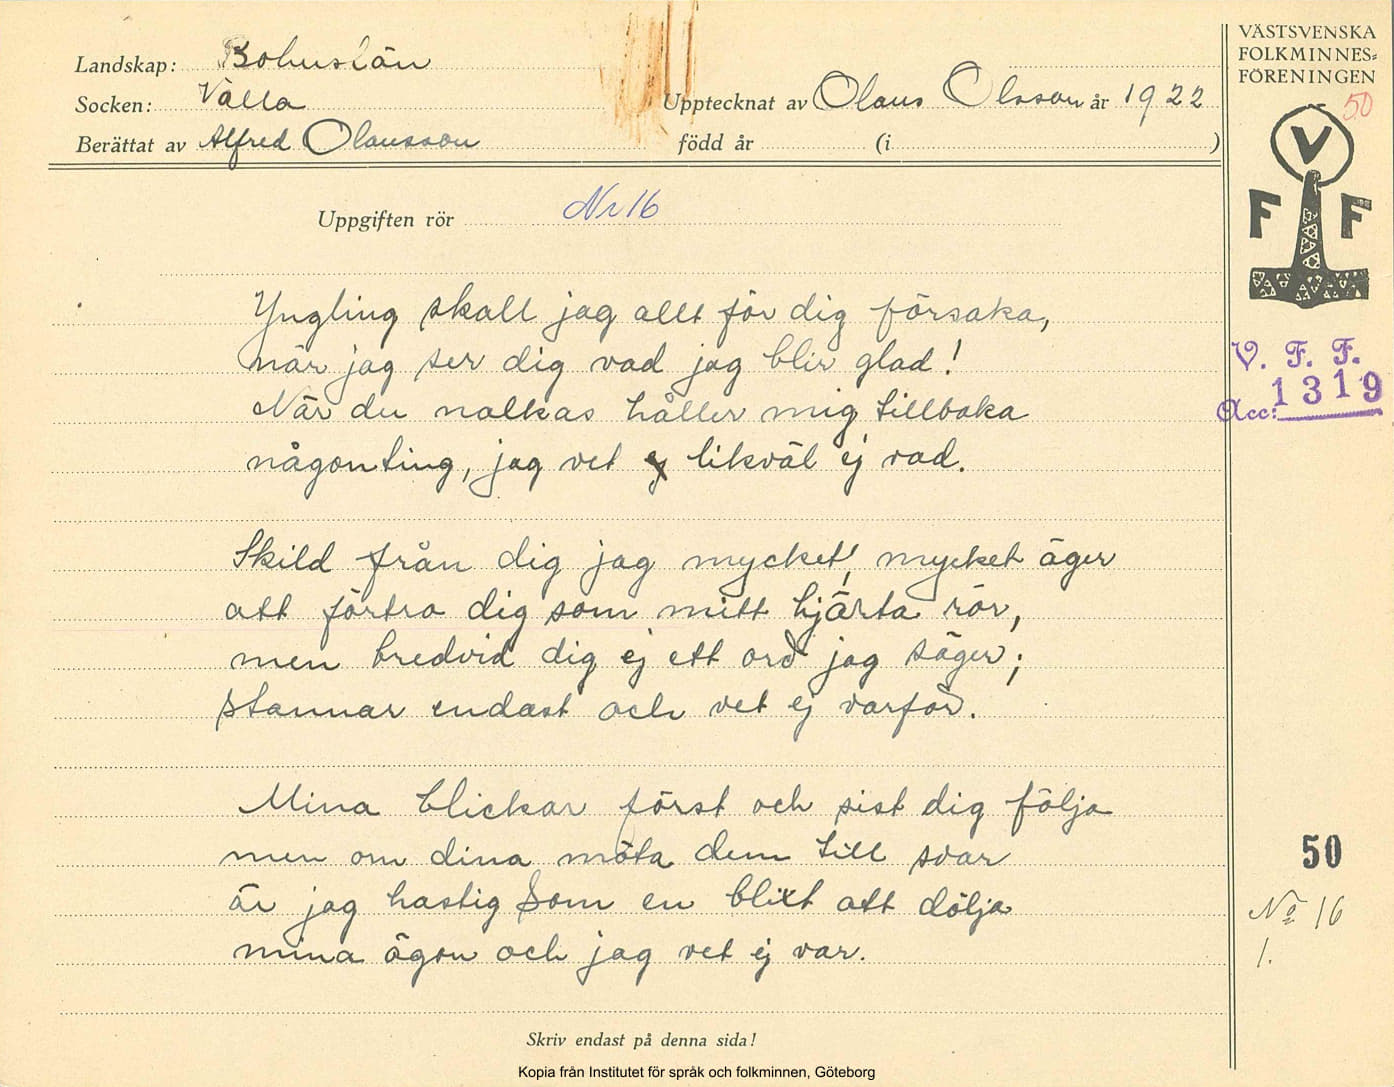 Landskap: Bohuslän
Socken: Valla
Berättat av Alfred Olausson
Upptecknat av Olaus Olsson år 1922
född år (i )
VÄSTSVENSKA
FOLKMINNES=
FÖRENINGEN
50
V
F F
Uppgiften rör Nr 16
Yngling skall jag allt för dig försaka,
när jag ser dig vad jag blir glad!
När du nalkas håller mig tillbaka
någonting, jag vet ej likväl ej vad.
V. F. F.
Acc: 1319
Skild från dig jag mycket, mycket äger
att förtro dig som mitt hjärta rör,
men bredvid dig ej ett ord jag säger;
stannar endast och vet ej varför.
Mina blickar först och sist dig följa
men om dina möta dem till svar
är jag hastig som en blixt att dölja
mina ögon och jag vet ej var.
50
No 16
1.
Skriv endast på denna sida!
Kopia från Institutet för språk och folkminnen, Göteborg